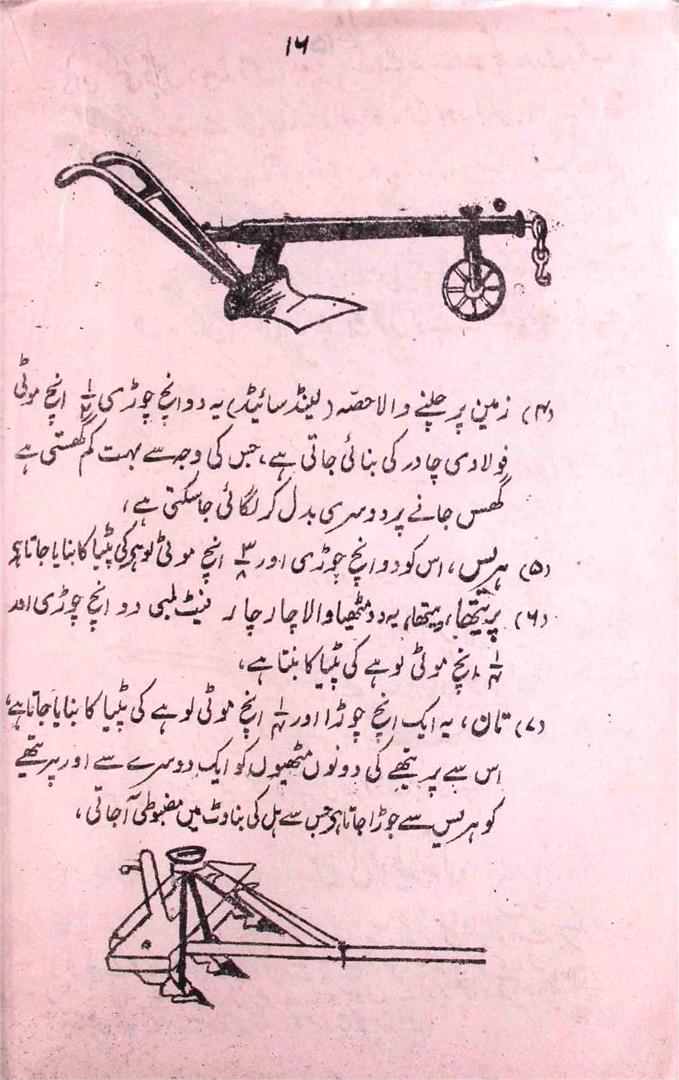 ۱۶
(۴) زمین پر چلنے والا حصّہ (لینڈ سائیڈ) یہ دو انچ چوڑی ۱/۲ انچ موٹی
فولادی چادر کی بنائی جاتی ہے، جس کی وجہ سے بہت کم گھستی ہے
گھس جانے پر دوسری بدل کر لگائی جا سکتی ہے،
(۵) ہریس، اس کو دو انچ چوڑی اور ۳/۸ انچ موٹی لوہے کی پٹیا کا بنایا جاتا ہے
(۶) پرہتھا، ہتھا، یہ دو مٹھیا والا چار چار فیٹ لمبی دو انچ چوڑی اور
۱/۴ انچ موٹی لوہے کی پٹیا کا بنتا ہے،
(۷) تان، یہ ایک انچ چوڑا اور ۱/۴ انچ موٹی لوہے کی پٹیا کا بنایا جاتا ہے،
اس سے پرہتھے کی دونوں مٹھیوں کو ایک دوسرے سے اور پرہتھے
کو ہریس سے جوڑا جاتا ہے جس سے ہل کی بناوٹ میں مضبوطی آ جاتی،